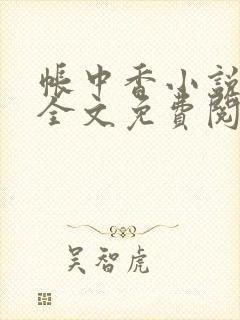 帳中香小說
全文免費閱
吴智虎